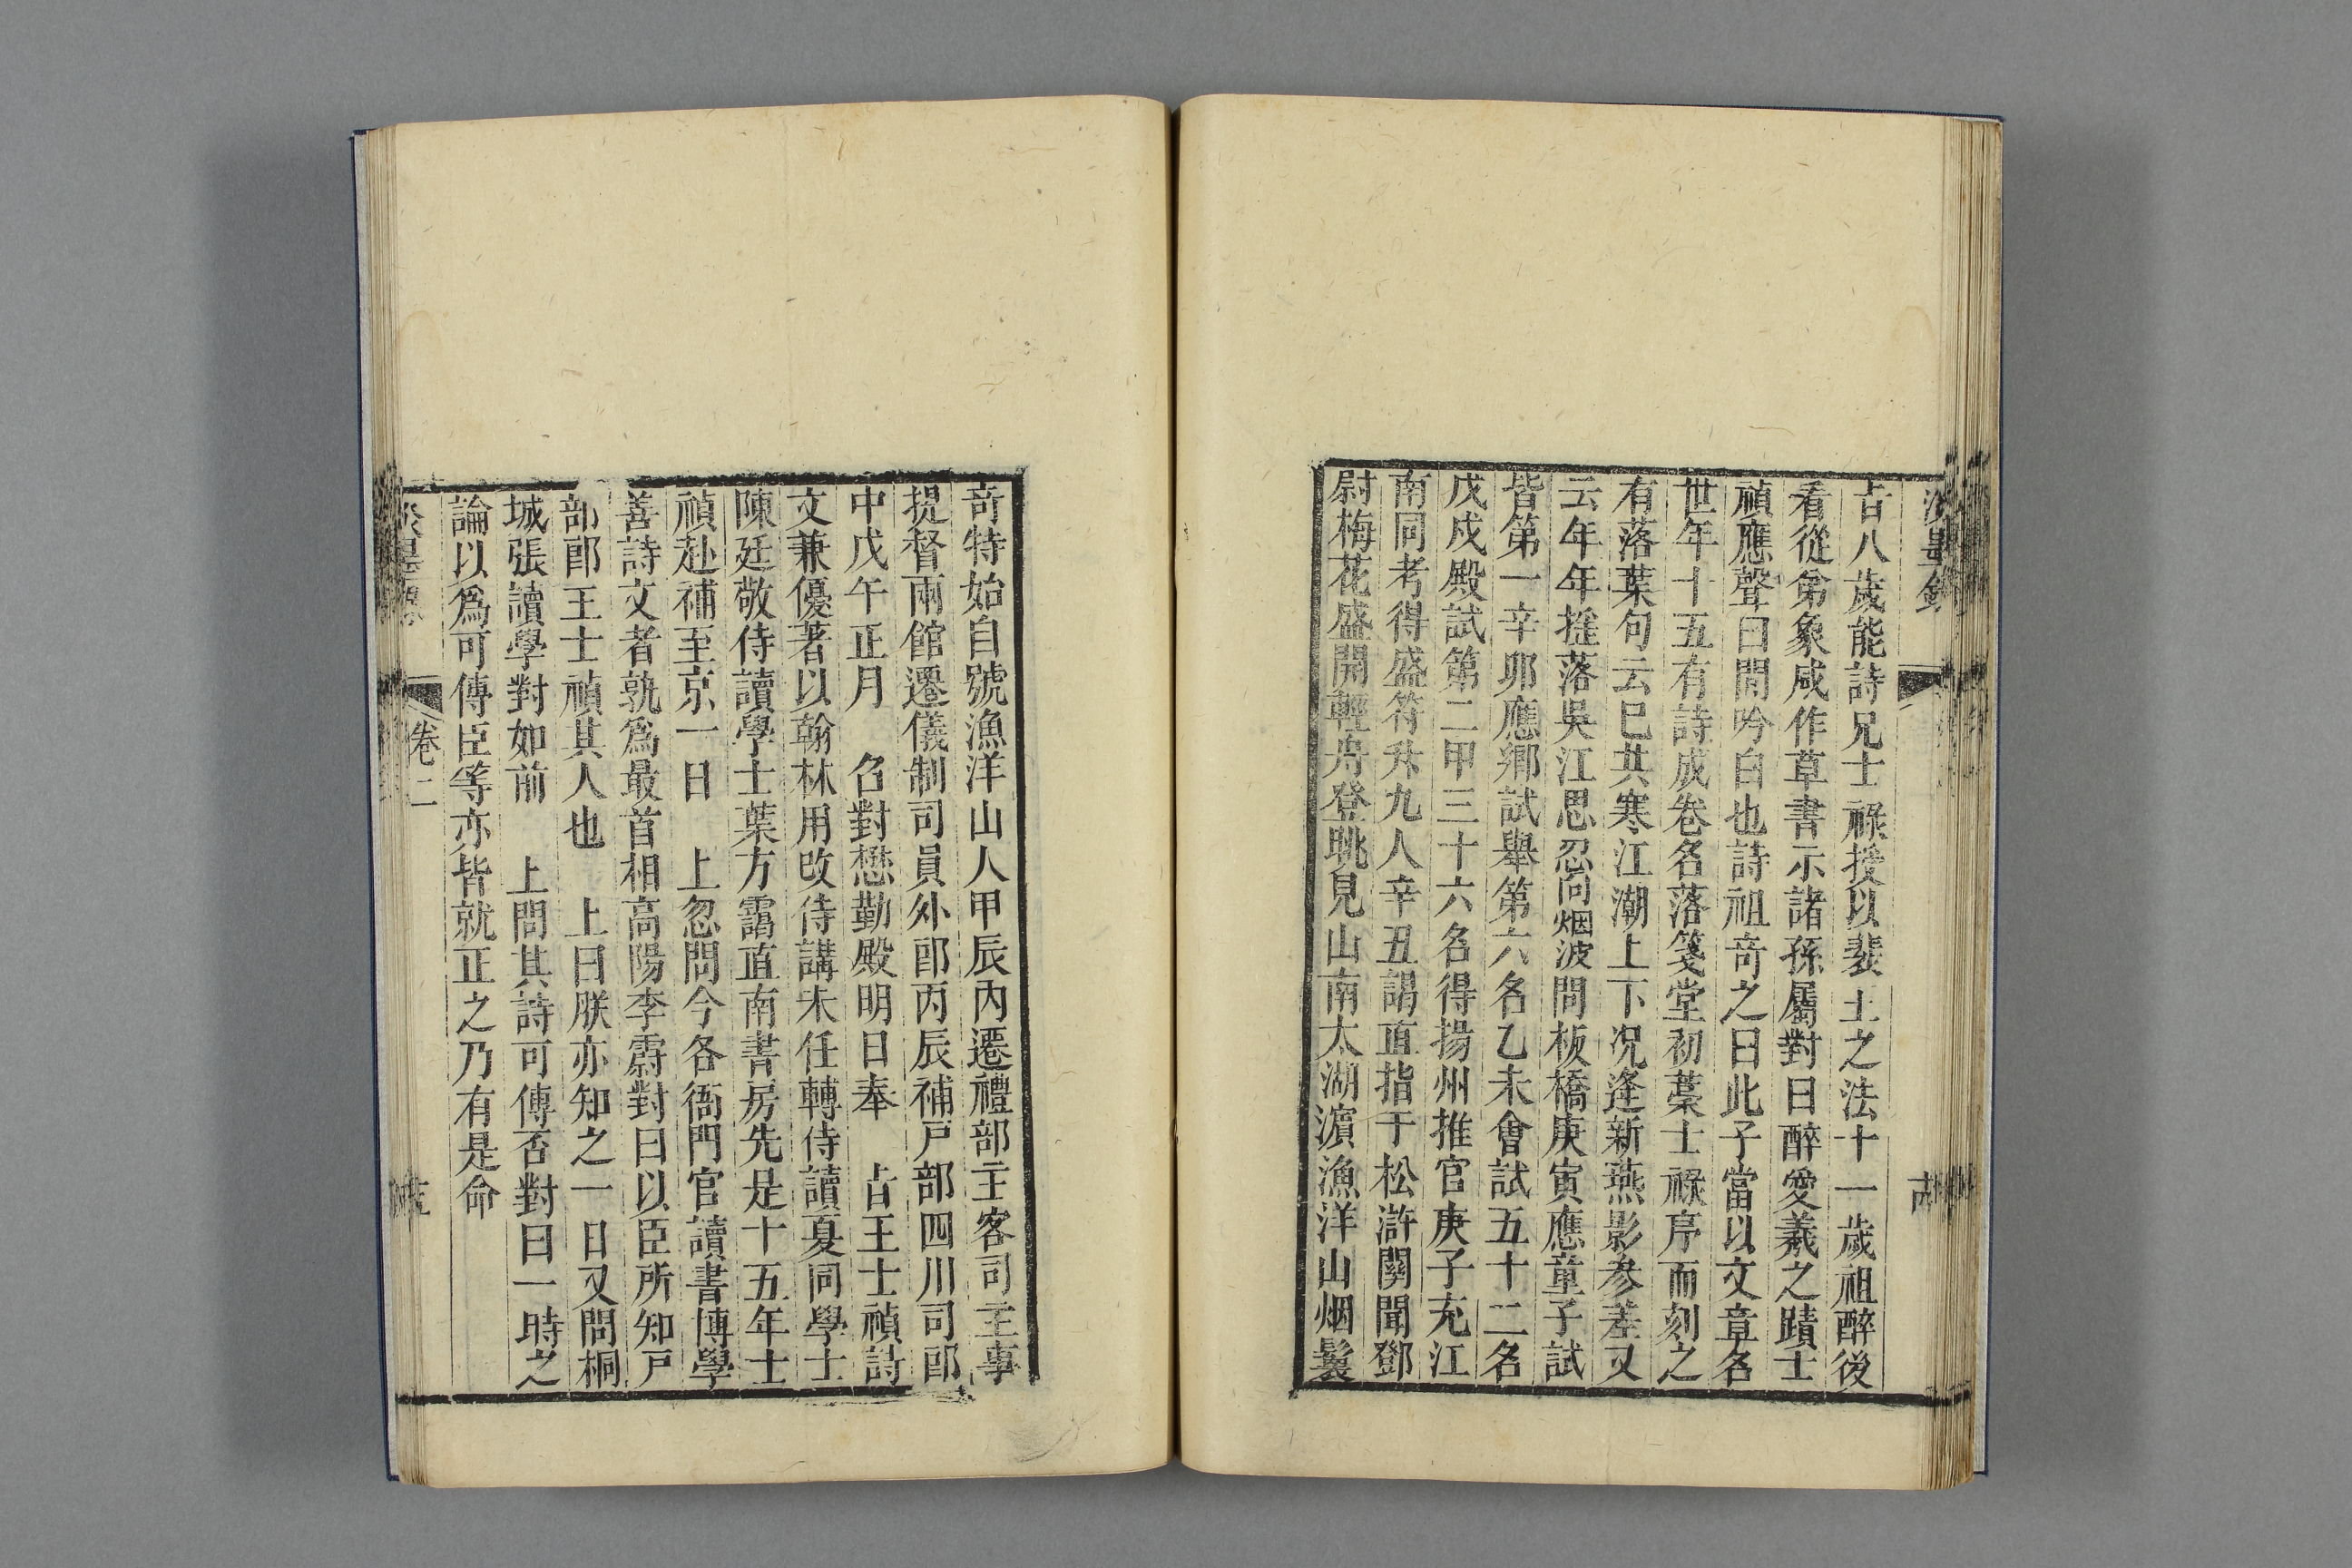 古八歲能詩兄士祿授以裴王之法十一歲祖醉後
看從弟象咸作草書示諸孫屬對曰醉愛羲之蹟士
禎應聲曰閒吟白也詩祖奇之曰此子當以文章名
世年十五有詩成卷名落箋堂初藁士祿序而刻之
有落葉句云巳共寒江潮上下况逢新燕影參差又
云年年搖落吳江思忍向烟波問板橋庚寅應童子試
皆第一辛卯應鄉試舉第六名乙未會試五十二名
戊戍殿試第二甲三十六名得揚州推官庚子充江
南同考得盛符升九人辛丑謁直指于松滸關聞鄧
尉梅花盛開輕舟登眺見山南太湖濵漁洋山烟鬟
奇特始自號漁洋山人甲辰內遷禮部主客司主事
提督兩館遷儀制司員外郎丙辰補戸部四川司郎
中戊午正月 召對懋勤殿明日奉 占王士禎詩
文兼優著以翰林用改侍講未任轉侍讀夏同學士
陳廷敬侍讀學士葉方靄直南書房先是十五年士
禎赴補至京一日 上忽問今各衙門官讀書博學
善詩文者孰爲最首相高陽李霨對曰以臣所知戸
部郎王士禎其人也 上曰朕亦知之一日又問桐
城張讀學對如前 上問其詩可傳否對曰一時之
論以爲可傳臣等亦皆就正之乃有是命
卷二